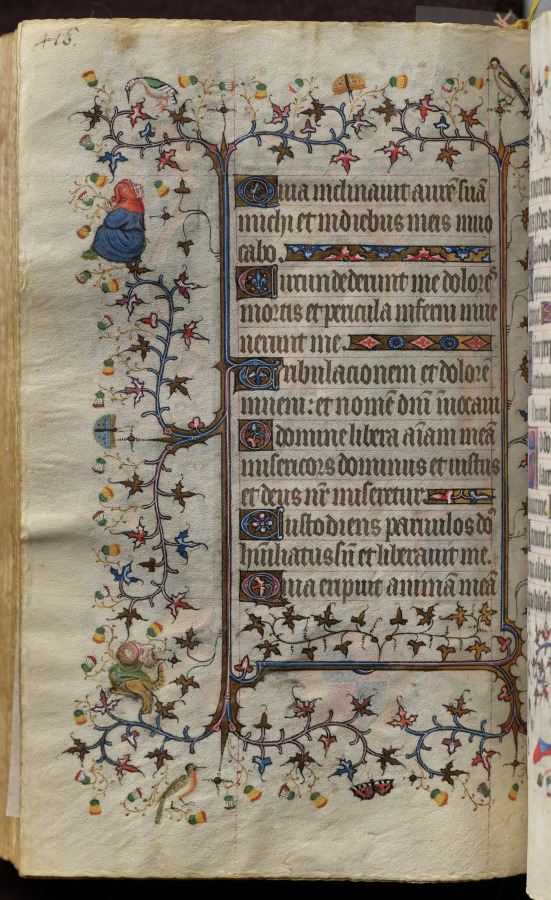 416.
Quia inclinauit aurē suā
michi et in diebus meis inuo
cabo.
Circundederunt me dolorēs
mortis et pericula inferni inue
nerunt me.
Tribulacionem et dolorē
inueni: et nomē dn̄i inuocaui
O domine libera aīam meā
misericors dominus et iustus
et deus nr̄ miseretur
Custodiens paruulos dn̄s
humiliatus sū et liberauit me.
Quia eripuit animā meā